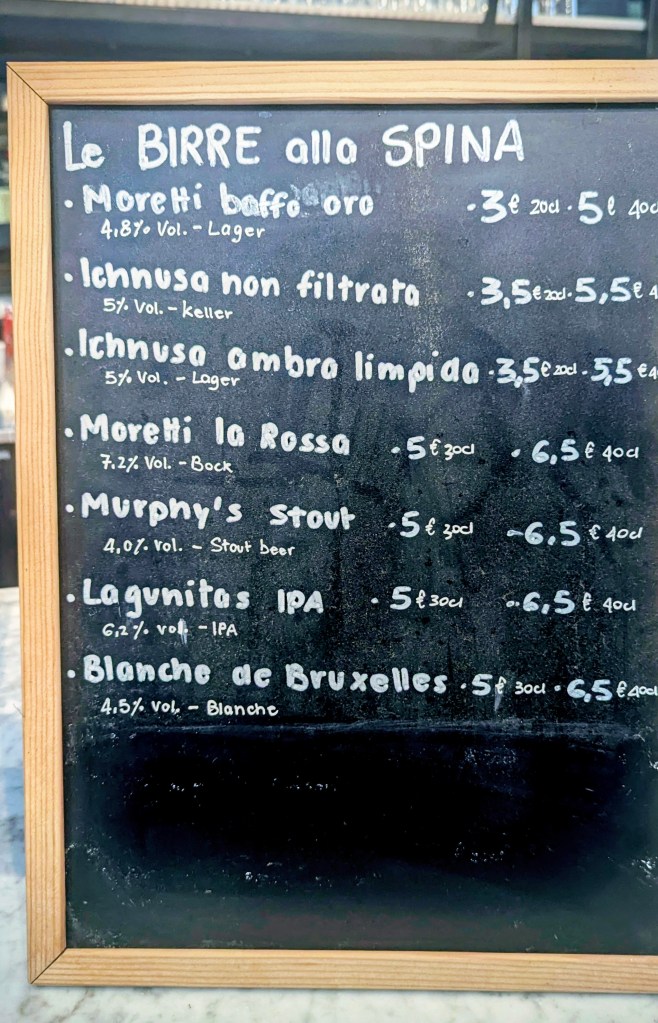 Le BIRRE alla SPINA
• Moretti baffo oro • 3€ 20cl • 5€ 40c
4,8% Vol. - Lager
• Ichnusa non filtrata • 3,5€ 20cl • 5,5€ 4
5% Vol. - keller
• Ichnusa ambra limpida • 3,5€ 20cl • 5,5€ 4
5% Vol. - Lager
• Moretti la Rossa • 5€ 30cl • 6,5€ 40cl
7.2% Vol. - Bock
• Murphy's Stout • 5€ 30cl - 6.5€ 40cl
4,0% Vol. - Stout beer
• Lagunitas IPA • 5€ 30cl • 6,5€ 40cl
6,2% vol. - IPA
• Blanche de Bruxelles • 5€ 30cl • 6,5€ 40cl
4,5% Vol. - Blanche